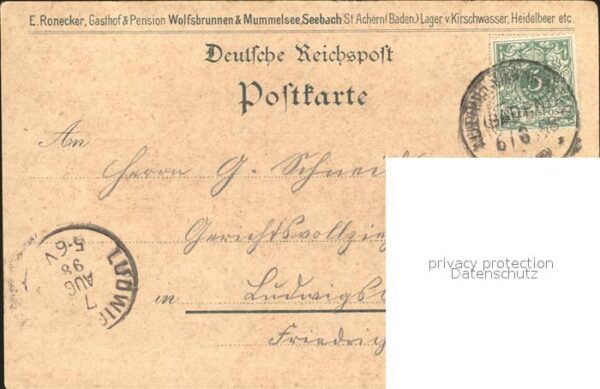 E. Ronecker, Gasthof & Pension Wolfsbrunnen & Mummelsee, Seebach St Achern (Baden) Lager v. Kirschwasser, Heidelbeer etc.
Deutsche Reichspost
Postkarte
5
An
Herrn G. Schnei
Gerichtsvollzie
in Ludwigsb
Friedric
LUDWIG
7
AUG
98
5-6V
privacy protection
Datenschutz